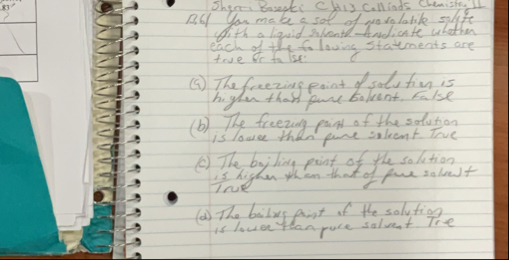 You make a sol of nonvolatile solute
with a liquid solvent Indicate whether
each of the following statements are
true or false:
(a) The freezing point of solution is
higher than pure solvent. False
(b) The freezing point of the solution
is lower than pure solvent True
(c) The boiling point of the solution
is higher than that of pure solvent
True
(d) The boiling point of the solution
is lower than pure solvent Tre